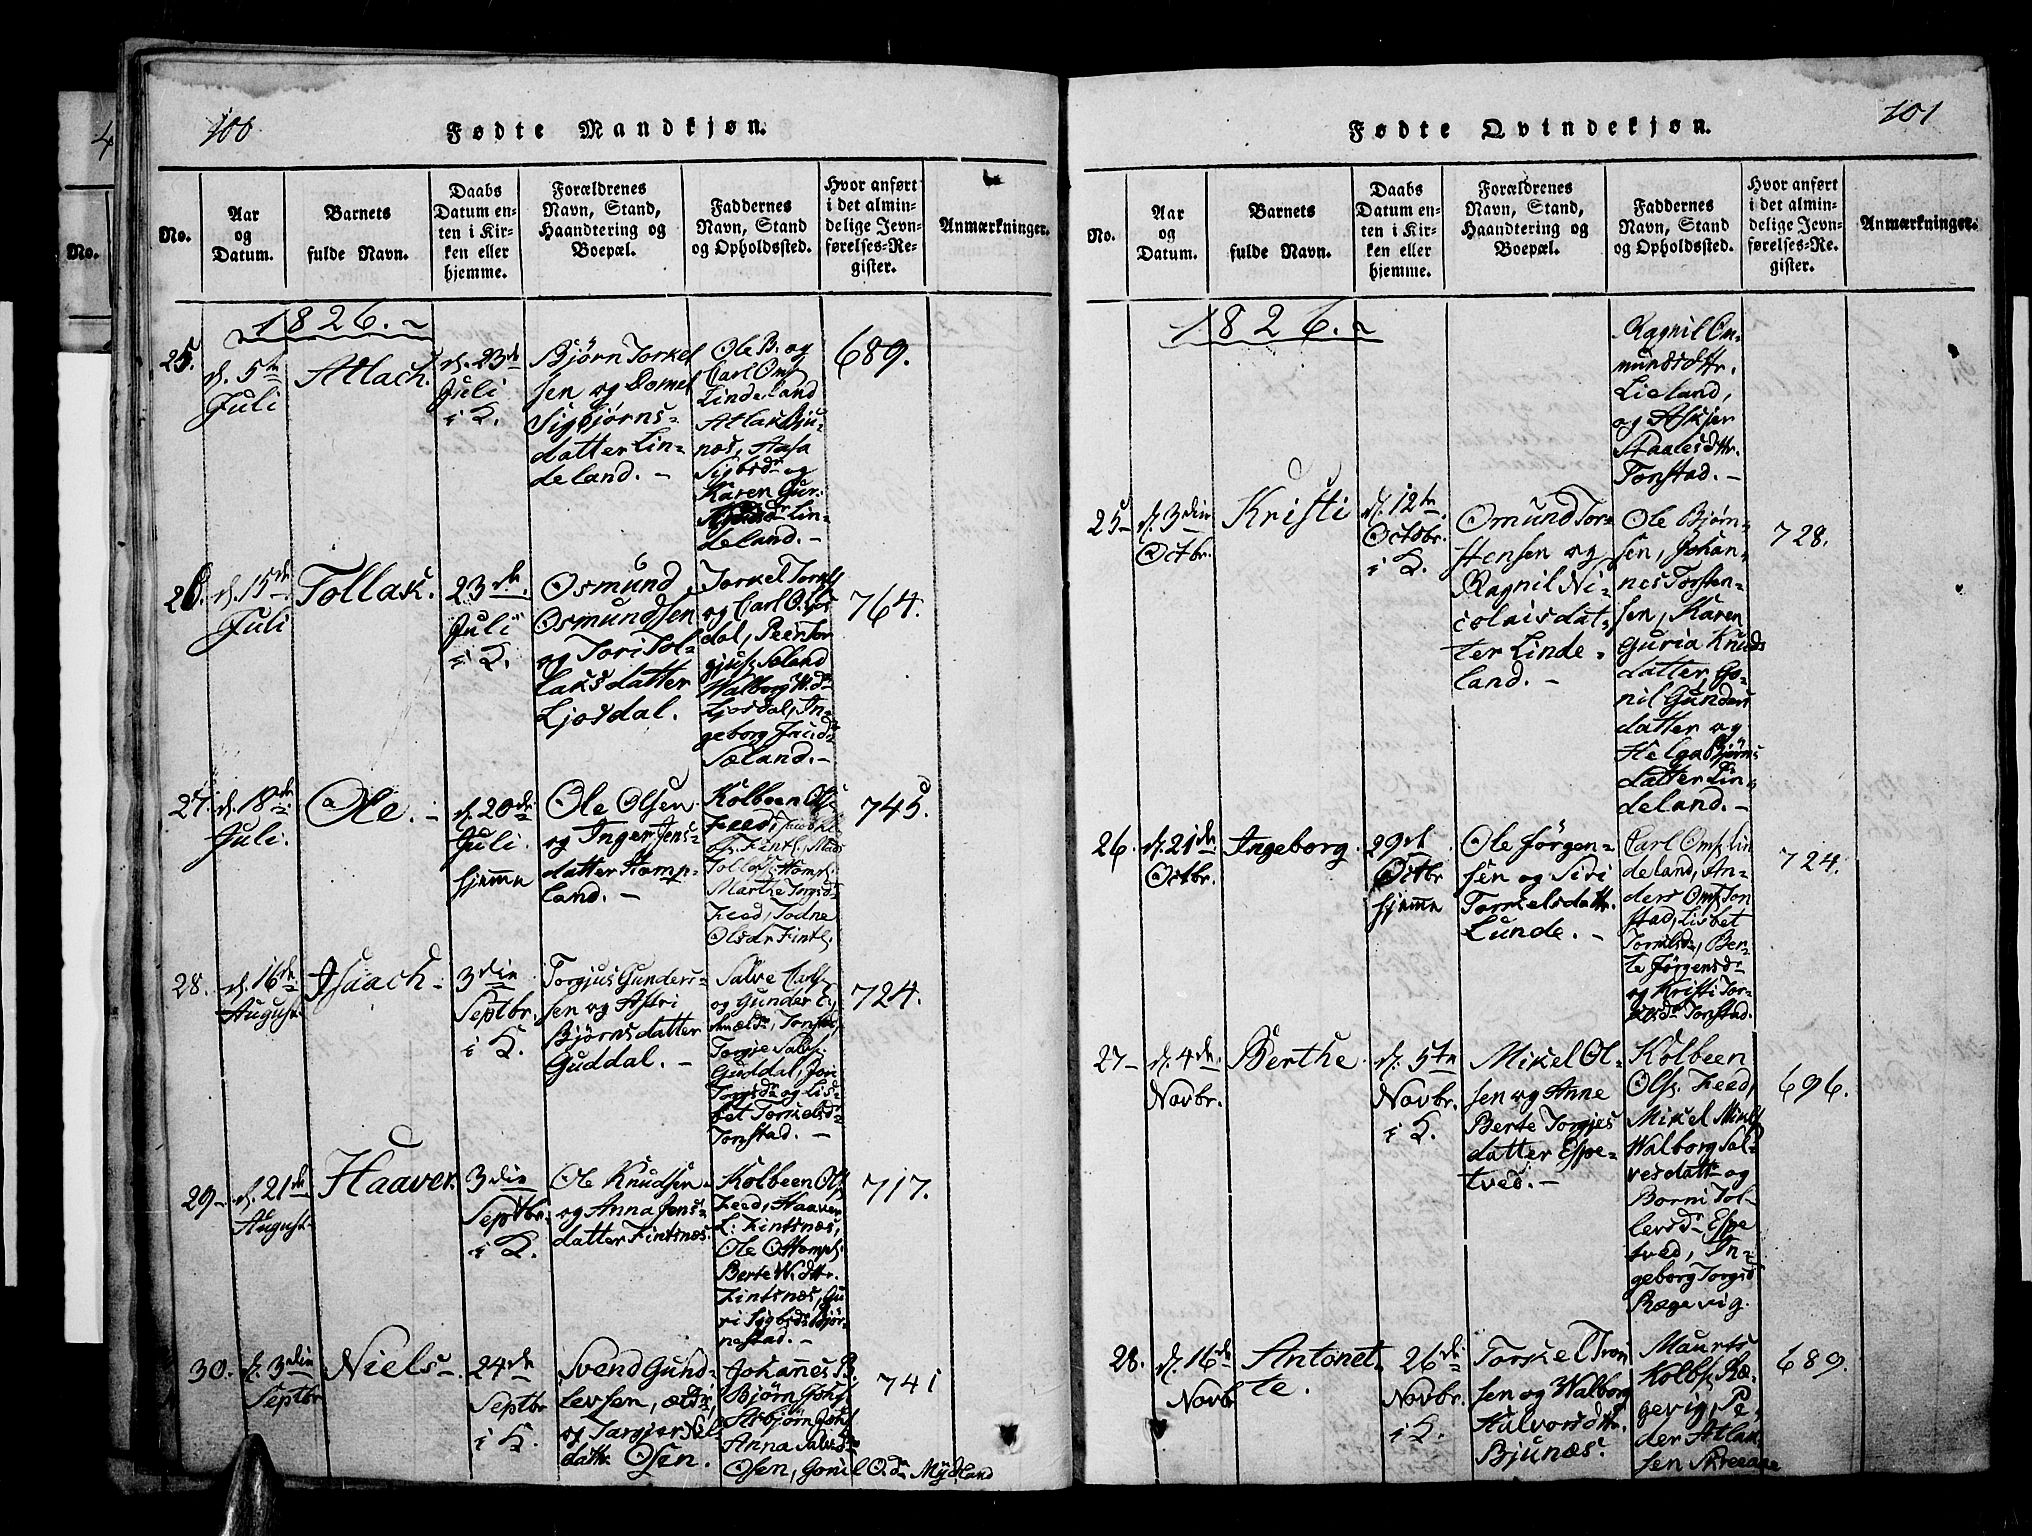 100
Fødte Mandkjøn.
No.
Aar
og
Datum.
Barnets
fulde Navn.
Daabs
Datum en-
ten i Kir-
ken eller
hjemme.
Forældrenes
Navn, Stand,
Haandtering og
Boepæl.
Faddernes
Navn, Stand
og Opholdssted.
Hvor anført
i det almin-
delige Jevn-
førelses-Re-
gister.
Anmærkninger.
1826.
25.
d. 5te
Juli
Atlach.
d. 23de
Juli
i K.
Bjørn Torkel
sen og Domet
Sigbjørns-
datter Lin-
deland.
Ole B. og
Carl Oms.
Lindeland
Atlak Bju-
næs, Aasa
Sigbsdr og
Karen Gur.
Lin-
deland.
689.
26.
d. 15de
Juli
Tollak.
23de
Juli
i K.
Osmund
Osmundsen
og Tori Tol-
laksdatter
Ljosdal.
Torkel
og Carl O. Ljos
dal, Peer Tor
gjus. Sæland
Walborg W.dr
Ljosdal, In-
geborg
Sæland.
764.
27.
d. 18de
Juli.
Ole.
d. 20de
Juli.
hjemme
Ole Olsen
og Inger Jens-
datter Stomp-
land.
Kolbeen Ols
Feed,
Marthe Torgsd
Feed, Todne
Olsdr Fintl.
745.
28.
d. 16de
August.
Isaach
3die
Septbr.
i K.
Torgjus Gunder-
sen og Astri
Bjørnsdatter
Guddal.
Salve Carls.
og Gunder E.
Tonstad,
Torgje Salv.
Guddal, Tori
Torgsdr og Lis-
bet Torkelsd
Tonstad.
724.
29
d. 21de
August
Haaver.
3die
Septbr.
i K.
Ole Knudsen
og Anna Jens-
datter Fintsnæs.
Kolbeen Ols
Feed, Haaver
L. Fintsnæs,
Ole O. Stompl.
Berte W.dttr.
Fintsnæs, Gu
ri Sigbsd. Bjør
nestad.
717.
30.
d. 3die
Septbr
Niels
24de
Septbr
i K.
Svend Gund-
levsen, ældr,
og Targjer Nil
dattr. Osen.
Johannes B.
Bjørn Johs.
Asbjørn Johs.
Anna Salvsdr
Osen, Gonil O.dr Mydland
741
101
Fødte Qvindekjøn.
No.
Aar
og
Datum.
Barnets
fulde Navn.
Daabs
Datum en-
ten i Kir-
ken eller
hjemme.
Forældrenes
Navn, Stand,
Haandtering og
Boepæl.
Faddernes
Navn, Stand
og Opholdssted.
Hvor anført
i det almin-
delige Jevn-
førelses-Re-
gister.
Anmærkninger.
1826.
Ragnil Om-
mundsdttr.
Lieland,
og Askjer
Staalesdttr.
Tonstad.
25
d. 3die
Octbr.
Kristi
d. 12te
Octobr.
i K.
Omund Tor-
stensen og
Ragnil Ni-
colaisdat-
ter Linde-
land.
Ole Bjørn-
sen, Johan-
nes Torsten-
sen, Karen
Guria Knuds
datter, Go-
nil Gunders
datter og
Helga Bjørns
datter Lin-
deland.
728.
26.
d. 21de
Octbr.
Ingeborg
29de
Octbr
hjemme
Ole Jørgen-
sen og Siri
Torkelsdattr.
Lunde.
Carl Oms. Lin
deland, An-
ders Oms. Ton
stad, Lisbet
Torkelsdr, Ber-
te Jørgensdr
og Kristi Tor-
kelsdr Tonstad.
724.
27
d. 4de
Novbr.
Berthe
d. 5te
Novbr.
i K.
Mikel Ol-
sen og Anne
Berte Torgjes
datter Espe-
tved.
Kolbeen
Ols. Feed,
Mikel Mikls
Walborg Sal-
vesdattr og
Borni Tol-
levsdr Espe
tved, In-
geborg Torgsd
Rægevig.
696.
28.
d. 16de
Novbr
Antonet-
te.
26de
Novbr
i K.
Torkel Tron
sen og Walborg
Halvorsdttr.
Bjunæs.
Maurts
Kolbs. Ræ-
gevig, Pe-
der Atlak
sen Skreaae
689.
4
No.